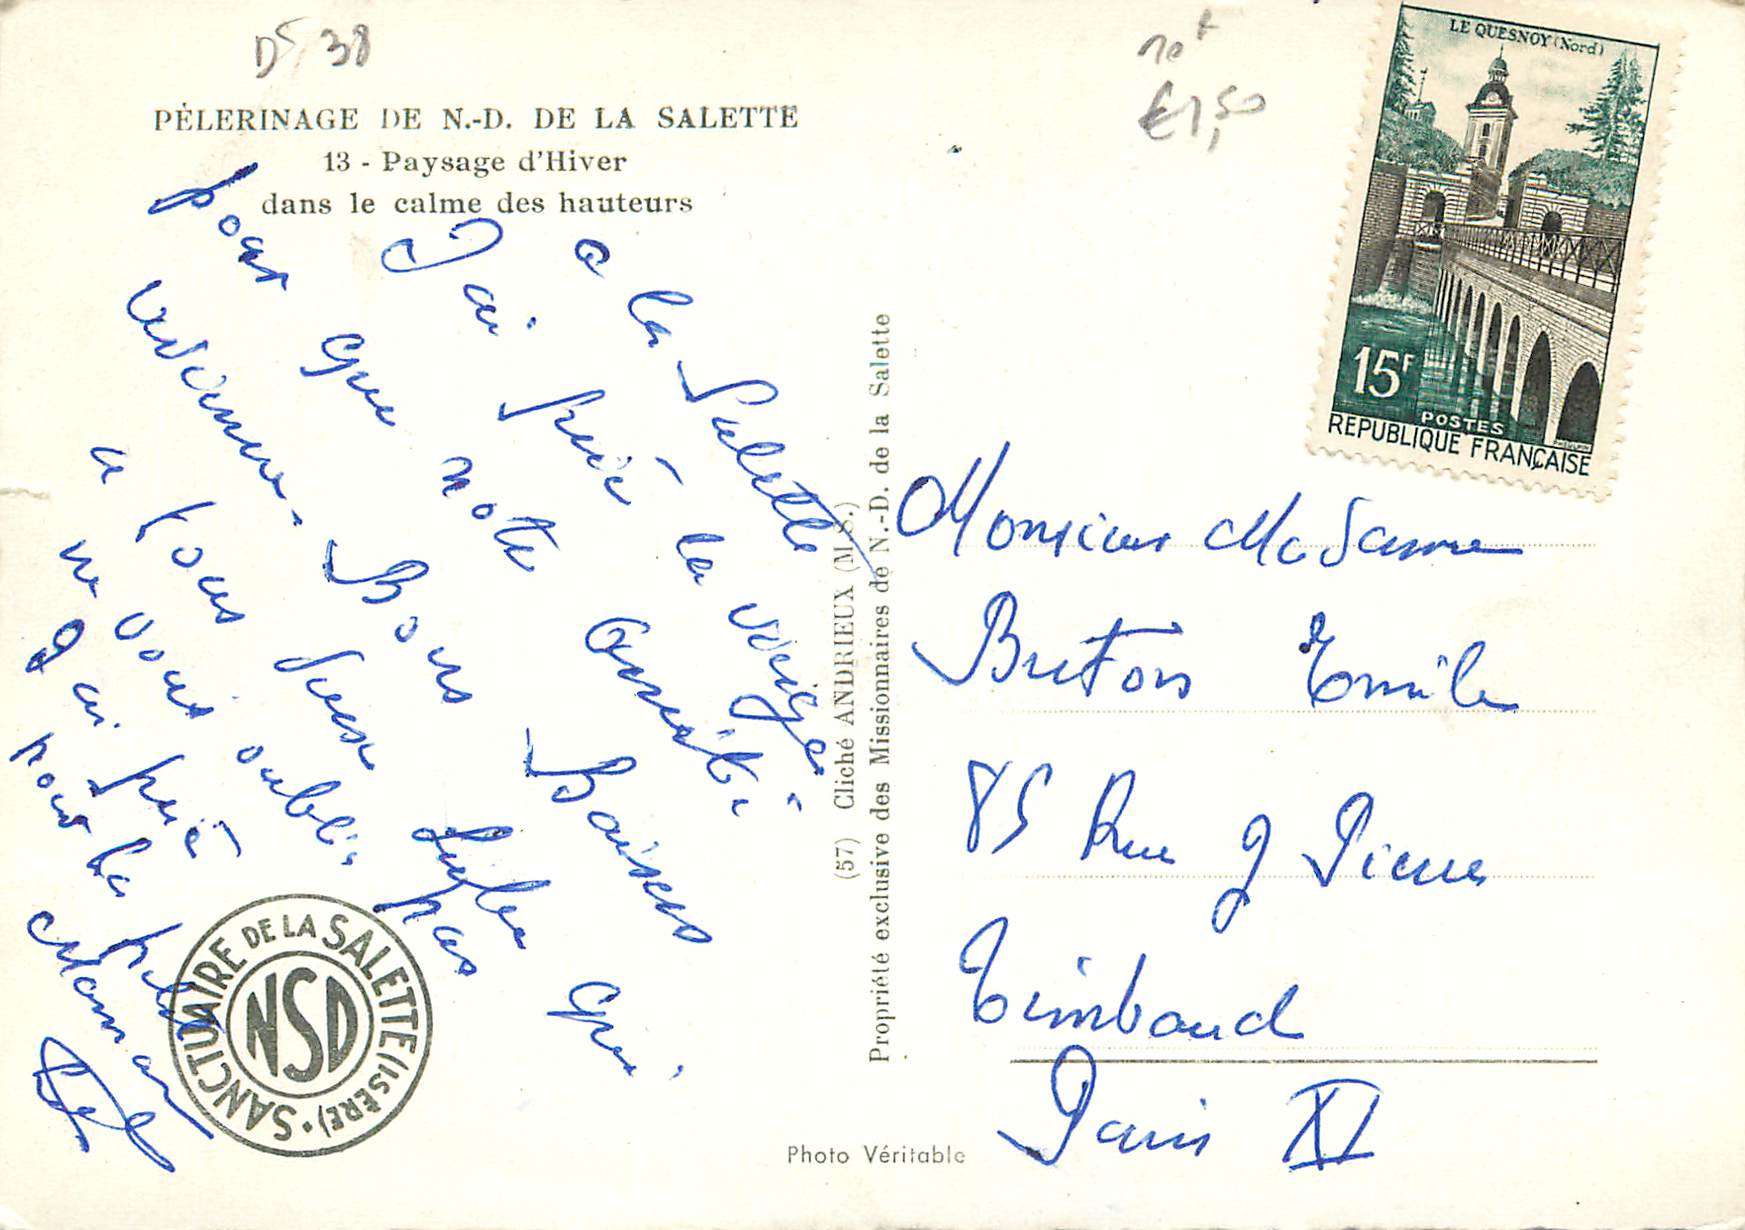 Ds 38
10F
€1,50
PÈLERINAGE DE N.-D. DE LA SALETTE
13 - Paysage d'Hiver
dans le calme des hauteurs
a la Salette
J'ai prié la vierge
pour que note amitié
redevienne Bons Baisers
a tous deux qui
ne vous oublie pas
J'ai prié
pour la
Maman
SANCTUAIRE DE LA SALETTE (ISÈRE)
NSD
(57) Cliché ANDRIEUX (M.S.)
Propriété exclusive des Missionnaires de N.-D. de la Salette
Photo Véritable
LE QUESNOY (Nord)
15F
POSTES
REPUBLIQUE FRANÇAISE
Monsieur Madame
Breton Emile
85 Rue J Pierre
Timbaud
Paris XI